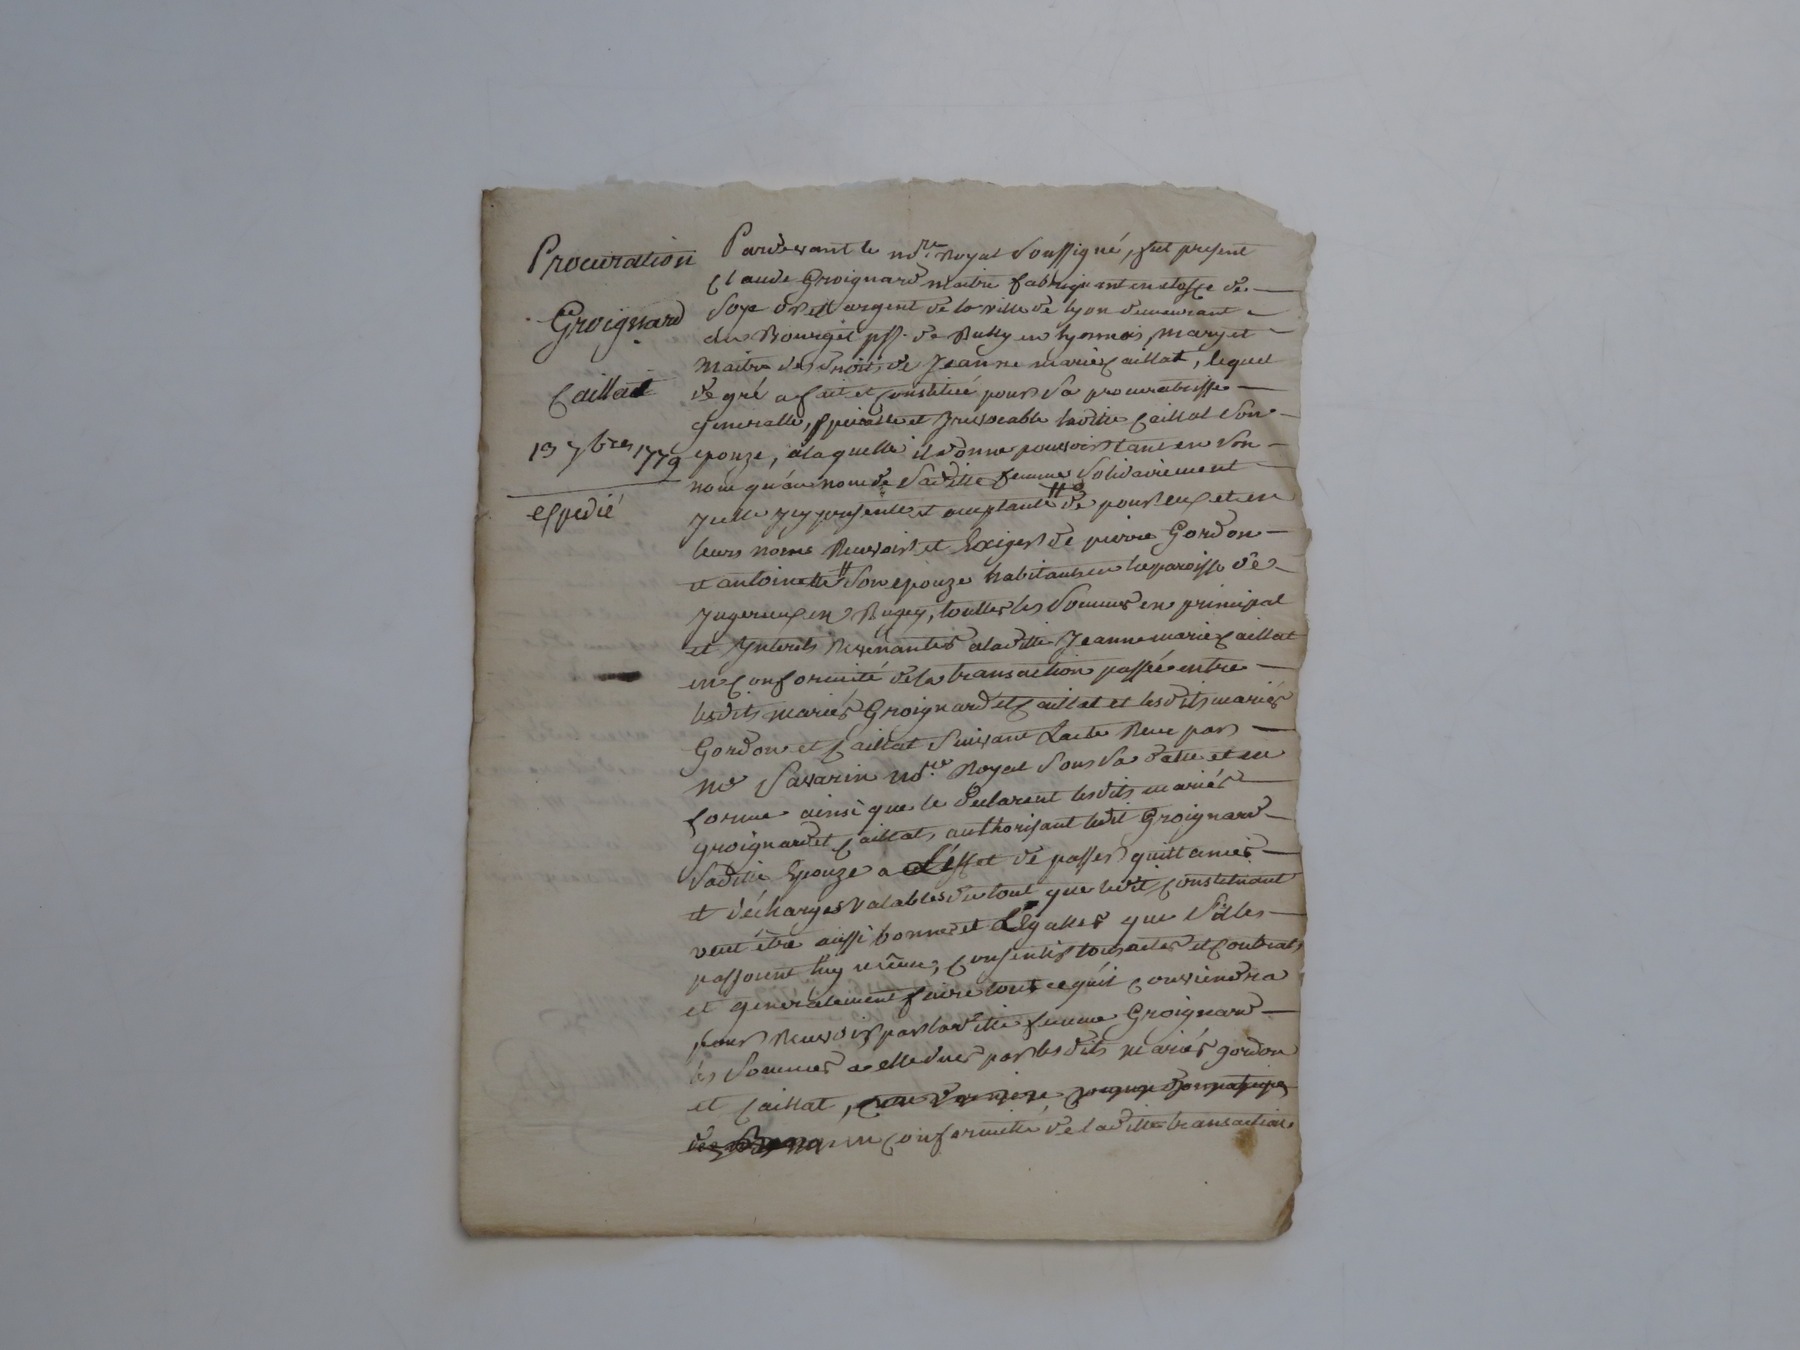 Procuration
Groignard
Caillat
13 7bres 1779
expedié
Pardevant le nore Royal Soussigné, fut présent
Claude Groignard maitre fabriquant en etoffe de
Soye or et argent de la ville de Lyon demeurant
du Bourget psse de Bully en Lyonnois, mary et
Maitre des droits de Jeanne marie Caillat, lequel
de gré a fait et Constitué pour Sa procuratrisse
generalle, Specialle et Irrevocable ladite Caillat Son
epouze, a laquelle il donne pouvoir tant en Son
nom qu'au nom de Sadite femme Solidairement
Icelle Icy presente et acceptante de pour eux et en
leurs noms Recevoir et Exiger de pierre Gordon
et antoinette Son epouze habitants en la paroisse de
Jugerieux en Bugey, touttes les Sommes en principal
et Interets Revenantes a ladite Jeanne marie Caillat
en Conformité de la transaction passée entre
lesdits mariés Groignard et Caillat et lesdits mariés
Gordon et Caillat Suivant Lacte Reçu par
Me Savarin nore Royal Sous Sa datte et en
forme ainsi que le declarent lesdits mariés
Groignard et Caillat, authorisant ledit Groignard
Sadite Epouze a L'effet de passer quittances
et décharges valables du tout que ledit Constituant
veut être aussi bonnes et Légalles que Si elles
passoient luy même, Consentir tous actes et Contrats
et generalement faire tout ce qu'il Conviendra
pour Recevoir par ladite femme Groignard
les Sommes a elle dues par lesdits mariés gordon
et Caillat,
en Conformitté de ladite transaction